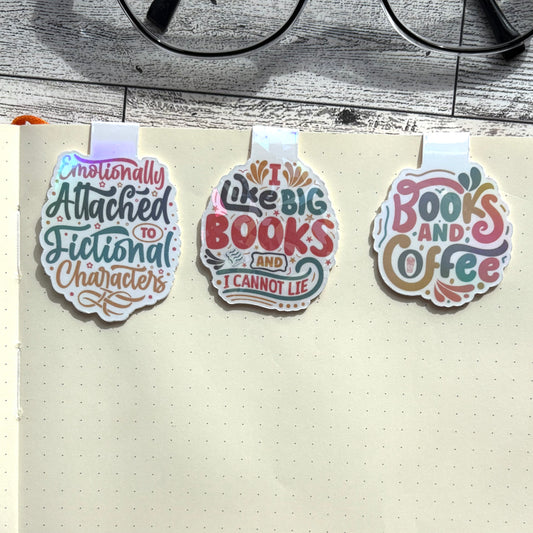 Emotionally
Attached
TO
Fictional
Characters
I
Like BIG
BOOKS
AND
I CANNOT LIE
BOOKS
AND
Coffee